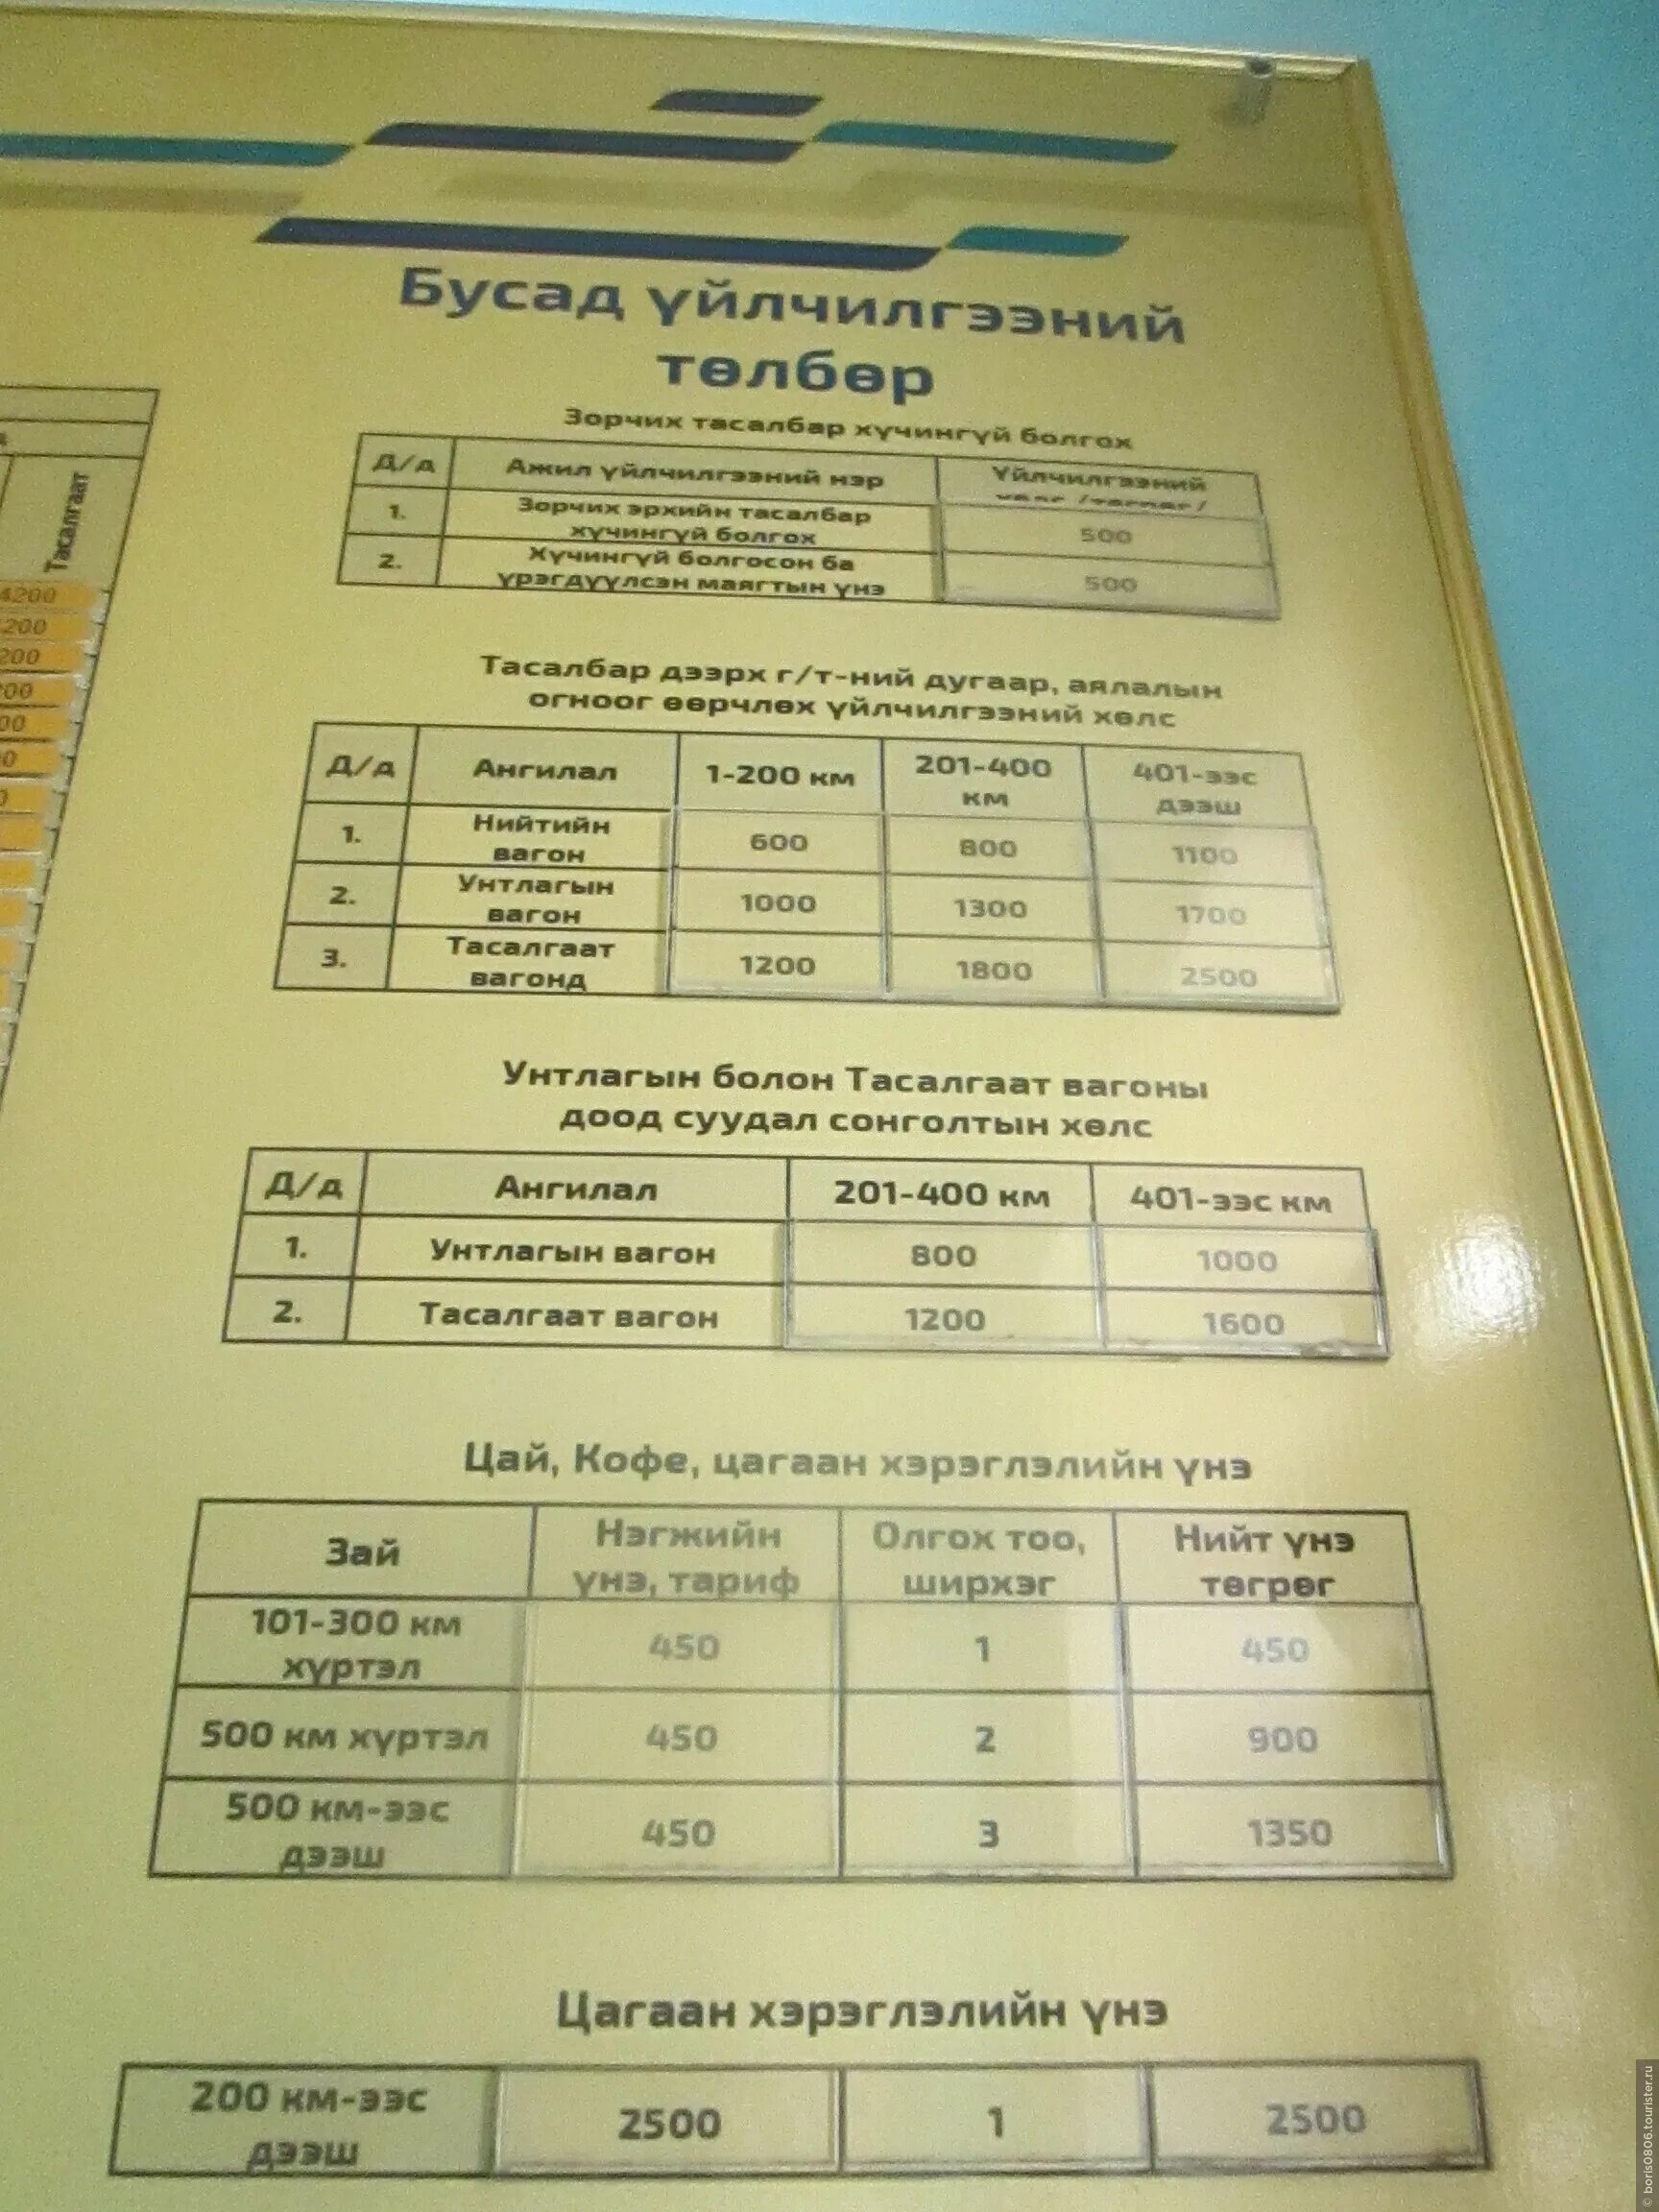 Бусад үйлчилгээний
төлбөр
Зорчих тасалбар хүчингүй болгох
Д/д Ажил үйлчилгээний нэр Үйлчилгээний
1. Зорчих эрхийн тасалбар
хүчингүй болгох 500
2. Хүчингүй болгосон ба
үрэгдүүлсэн маягтын үнэ 500
Тасалбар дээрх г/т-ний дугаар, аялалын
огноог өөрчлөх үйлчилгээний хөлс
Д/д Ангилал 1-200 км 201-400
км 401-ээс
дээш
1. Нийтийн
вагон 600 800 1100
2. Унтлагын
вагон 1000 1300 1700
3. Тасалгаат
вагонд 1200 1800 2500
Унтлагын болон Тасалгаат вагоны
доод суудал сонголтын хөлс
Д/д Ангилал 201-400 км 401-ээс км
1. Унтлагын вагон 800 1000
2. Тасалгаат вагон 1200 1600
Цай, Кофе, цагаан хэрэглэлийн үнэ
Зай Нэгжийн
үнэ, тариф Олгох тоо,
ширхэг Нийт үнэ
төгрөг
101-300 км
хүртэл 450 1 450
500 км хүртэл 450 2 900
500 км-ээс
дээш 450 3 1350
Цагаан хэрэглэлийн үнэ
200 км-ээс
дээш 2500 1 2500
Тасалгаат
4200
200
200
00
00
0
0
© boris0806.tourister.ru